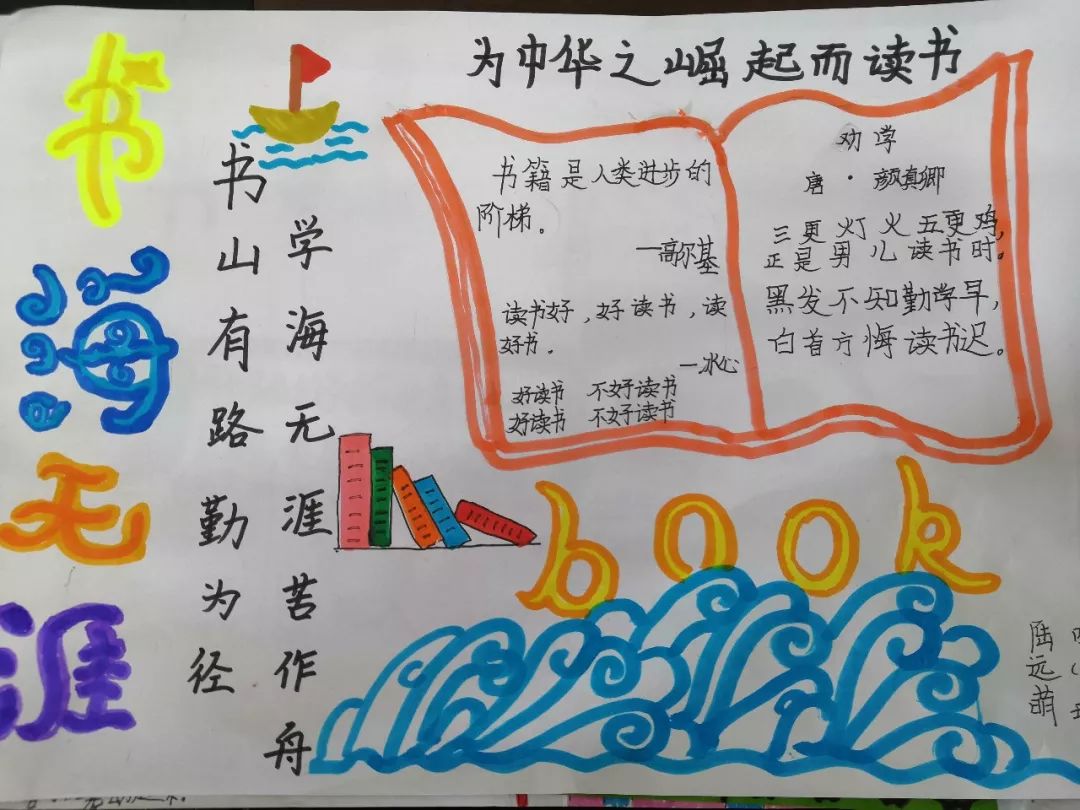 书海无涯
书山有路勤为径
学海无涯苦作舟
为中华之崛起而读书
书籍是人类进步的
阶梯。
—高尔基
读书好,好读书,读
好书.
—冰心
好读书 不好读书
好读书 不好读书
劝学
唐·颜真卿
三更灯火五更鸡,
正是男儿读书时。
黑发不知勤学早,
白首方悔读书迟。
book
陆远萌